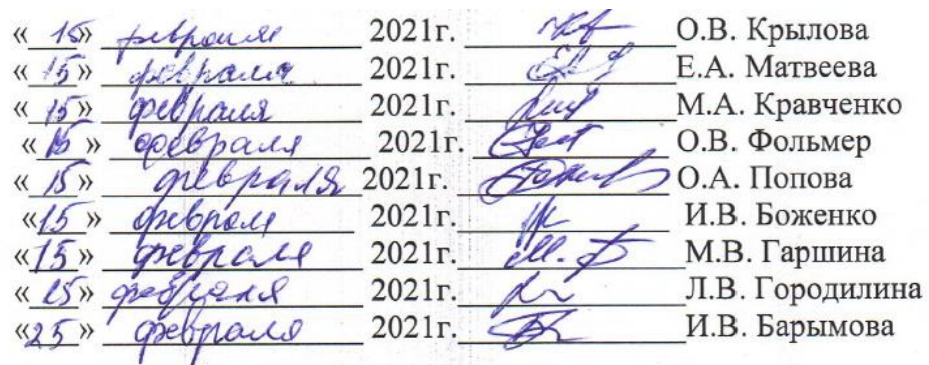 « 15» февраля 2021г. О.В. Крылова
« 15 » февраля 2021г. Е.А. Матвеева
« 15 » февраля 2021г. М.А. Кравченко
« 15 » февраля 2021г. О.В. Фольмер
« 15 » февраля 2021г. О.А. Попова
«15 » феврал 2021г. И.В. Боженко
«15 » февраля 2021г. М.В. Гаршина
« 15» февраля 2021г. Л.В. Городилина
«25 » февраля 2021г. И.В. Барымова